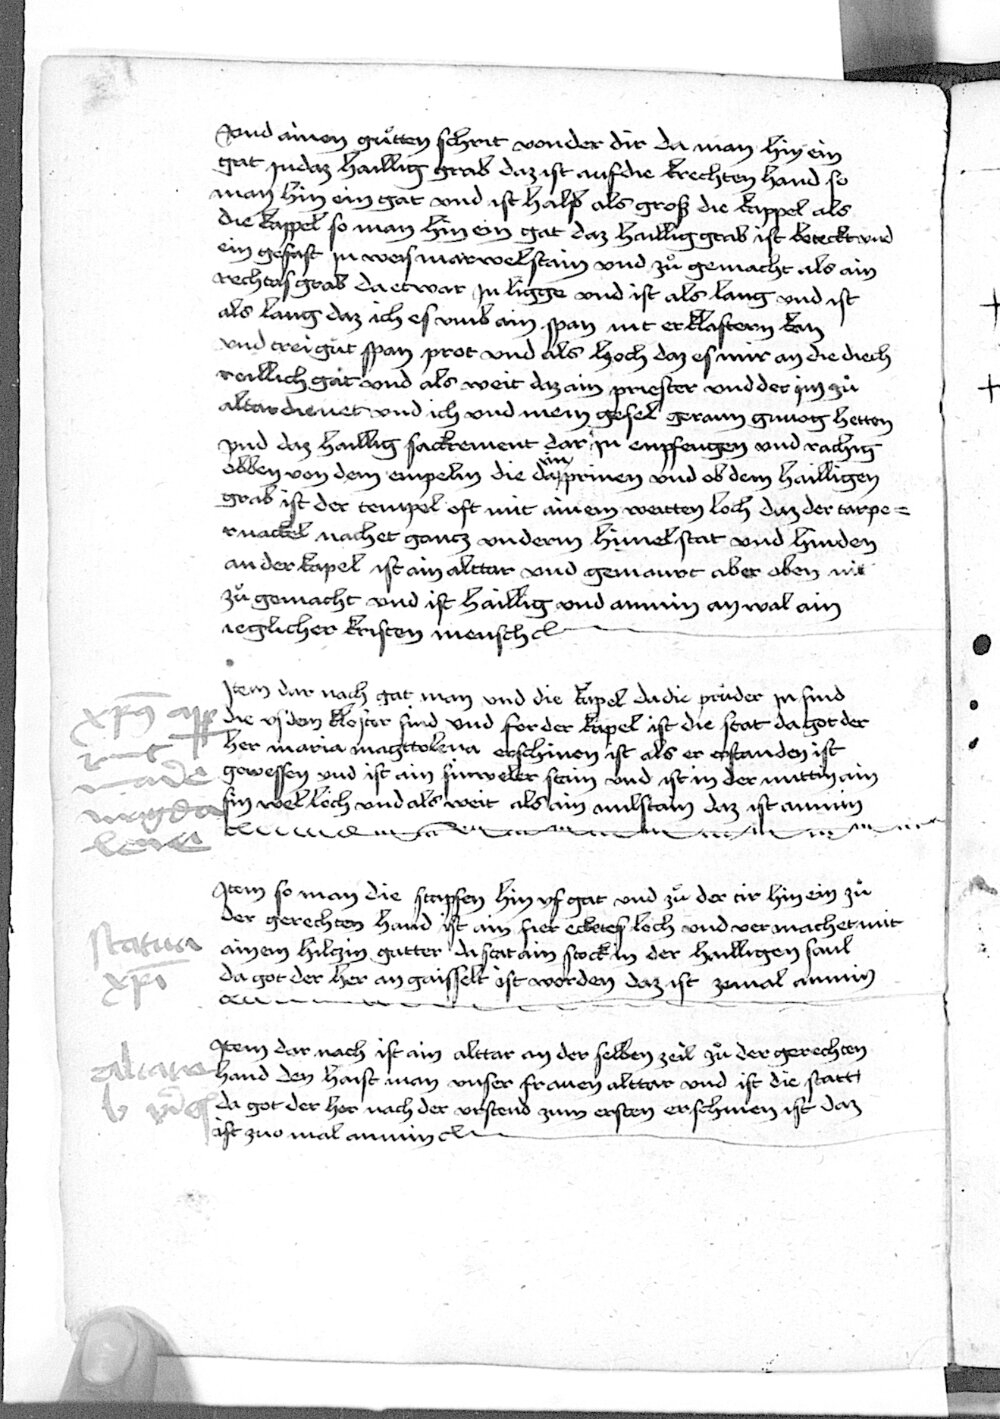 vnd ainen gůtten schrit von der dir da man hin ein
gat in daz haillig grab daz ist auf die krechten hand so
man hin ein gat vnd ist halb als groß die kappel als
die kappel so man hin ein gat daz haillig grab ist beteckt vnd
ein gefast in weis marwelstain vnd zů gemacht als ain
rechtes grab da etwar in ligge vnd ist als lang vnd ist
als lang daz ich es vmb ain span nit erklaftern kan
vnd trei gůt span prot vnd als hoch daz es mir an die diech
reillich gat vnd als weit daz ain priester vnd der im zů
altar dienet vnd ich vnd mein gesel geraum gnuog hetten
vnd daz haillig sackrement dar in enpfengen vnd rachig
obben von dem empeln die da in prinen vnd ob dem hailligen
grab ist der tempel oft mit ainem weitten loch daz der tarpe=
rnackel nachet gantz vnderm himel stat vnd hinden
an der kapel ist ain alttar vnd gemaurt aber oben nit
zů gemacht vnd ist haillig vnd annim an wal ain
ieglicher kristen mensch
Item dar nach gat man vnd die kapel da die prüder in sind
die vs dem kloster sind vnd for der kapel ist die stat da got der
her maria magttolena erschinen ist als er erstanden ist
gewessen vnd ist ain sinweler stain vnd ist in der mittin ain
sin wel loch vnd als weit als ain mulstain daz ist annim
xpus app
rint
marie
magda
lene
Item so man die stapfen hin vf gat vnd zů der tir hin ein zů
der gerechten hand ist ain fier ecketes loch vnd vermachet mit
ainem hilczin gatter da stat ain stock in der hailligen saul
da got der her an gaisselt ist worden daz ist zemal annim
statua
xpi
Item dar nach ist ain alttar an der selben zeil zů der gerechten
hand den haist man vnser frauen alttar vnd ist die statt
da got der her nach der vrstend zum ersten erschinen ist daz
ist zuo mal annim
altare
b